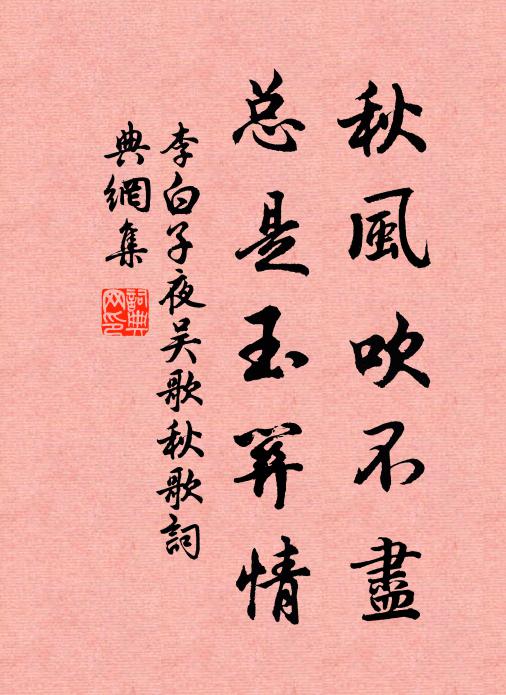 秋風吹不盡
总是玉関情
李白子夜吴歌秋歌詞
典網集
詞典网印